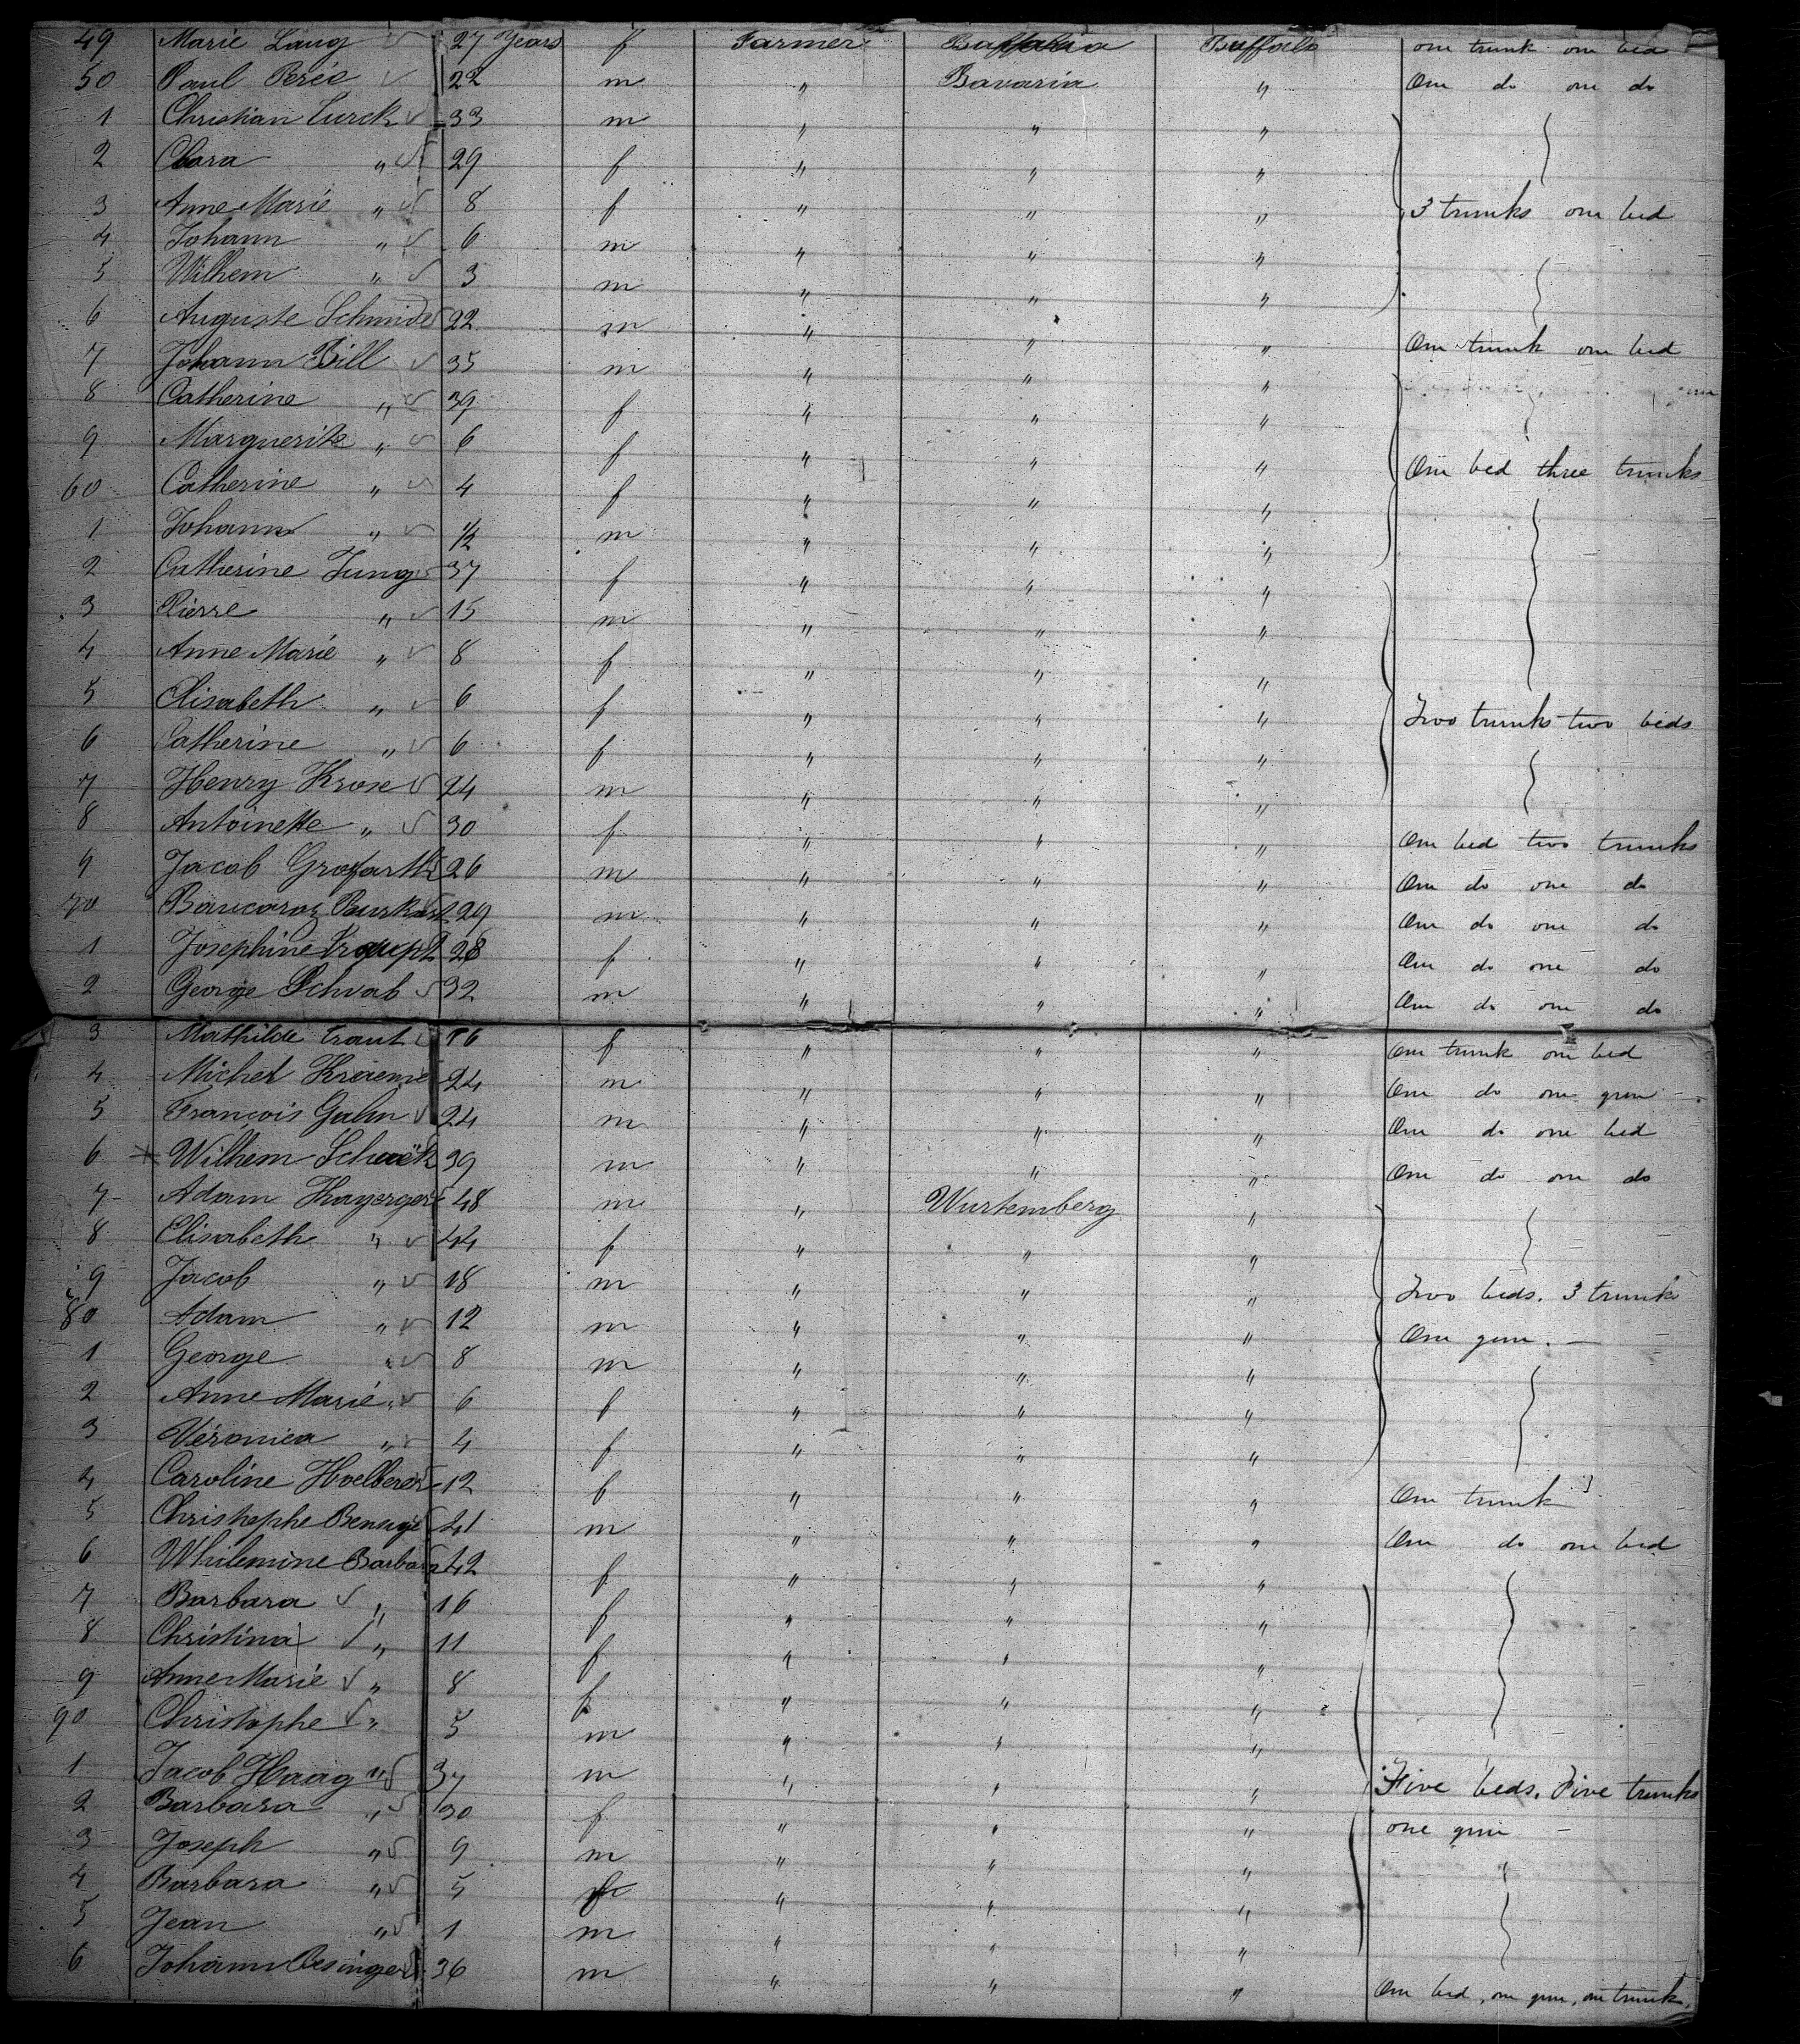 49 Marie Laug 27 Years f Farmer Buffalo one trunk one bed
50 Paul Perée 22 m " Bavaria " One do one do
1 Christian Turck 33 m " " "
2 Clara " 29 f " " "
3 Anne Marie " 8 f " " " 3 trunks one bed
4 Johann " 6 m " " "
5 Wilhem " 3 m " " "
6 Auguste Schmide 22 m " " " One trunk one bed
7 Johann Bill 35 m " " "
8 Catherine " 39 f " " "
9 Marguerite " 6 f " " " One bed three trunks
60 Catherine " 4 f " " "
1 Johann " 1/2 m " " "
2 Catherine Jung 37 f " " "
3 Pierre " 15 m " " "
4 Anne Marie " 8 f " " "
5 Elisabeth " 6 f " " " Two trunks two beds
6 Catherine " 6 f " " "
7 Henry Krose 24 m " " "
8 Antoinette " 30 f " " " One bed two trunks
9 Jacob 26 m " " " One do one do
70 29 m " " " One do one do
1 Josephine 28 f " " " One do one do
2 George Schvab 32 m " " " One do one do
3 Mathilde Traut 16 f " " " One trunk one bed
4 Michel 24 m " " " One do one gun
5 François Gahn 24 m " " " One do one bed
6 Wilhem 39 m " " " One do one do
7 Adam 48 m " Wurtemberg "
8 Elisabeth " 44 f " " "
9 Jacob " 18 m " " " Two beds. 3 trunks
80 Adam " 12 m " " " One gun. —
1 George " 8 m " " "
2 Anne Marie " 6 f " " "
3 Véronica " 4 f " " "
4 Caroline 12 f " " " One trunk
5 Christophe 21 m " " " One do one bed
6 Whilemine Barbara 42 f " " "
7 Barbara " 16 f " " "
8 Christina " 11 f " " "
9 Anne Marie " 8 f " " "
90 Christophe " 5 m " " "
1 Jacob Haag " 37 m " " " Five beds. Five trunks
2 Barbara " 30 f " " " one gun —
3 Joseph " 9 m " " "
4 Barbara " 5 f " " "
5 Jean " 1 m " " "
6 Johann Besinger 36 m " " " One bed, one gun, one trunk.